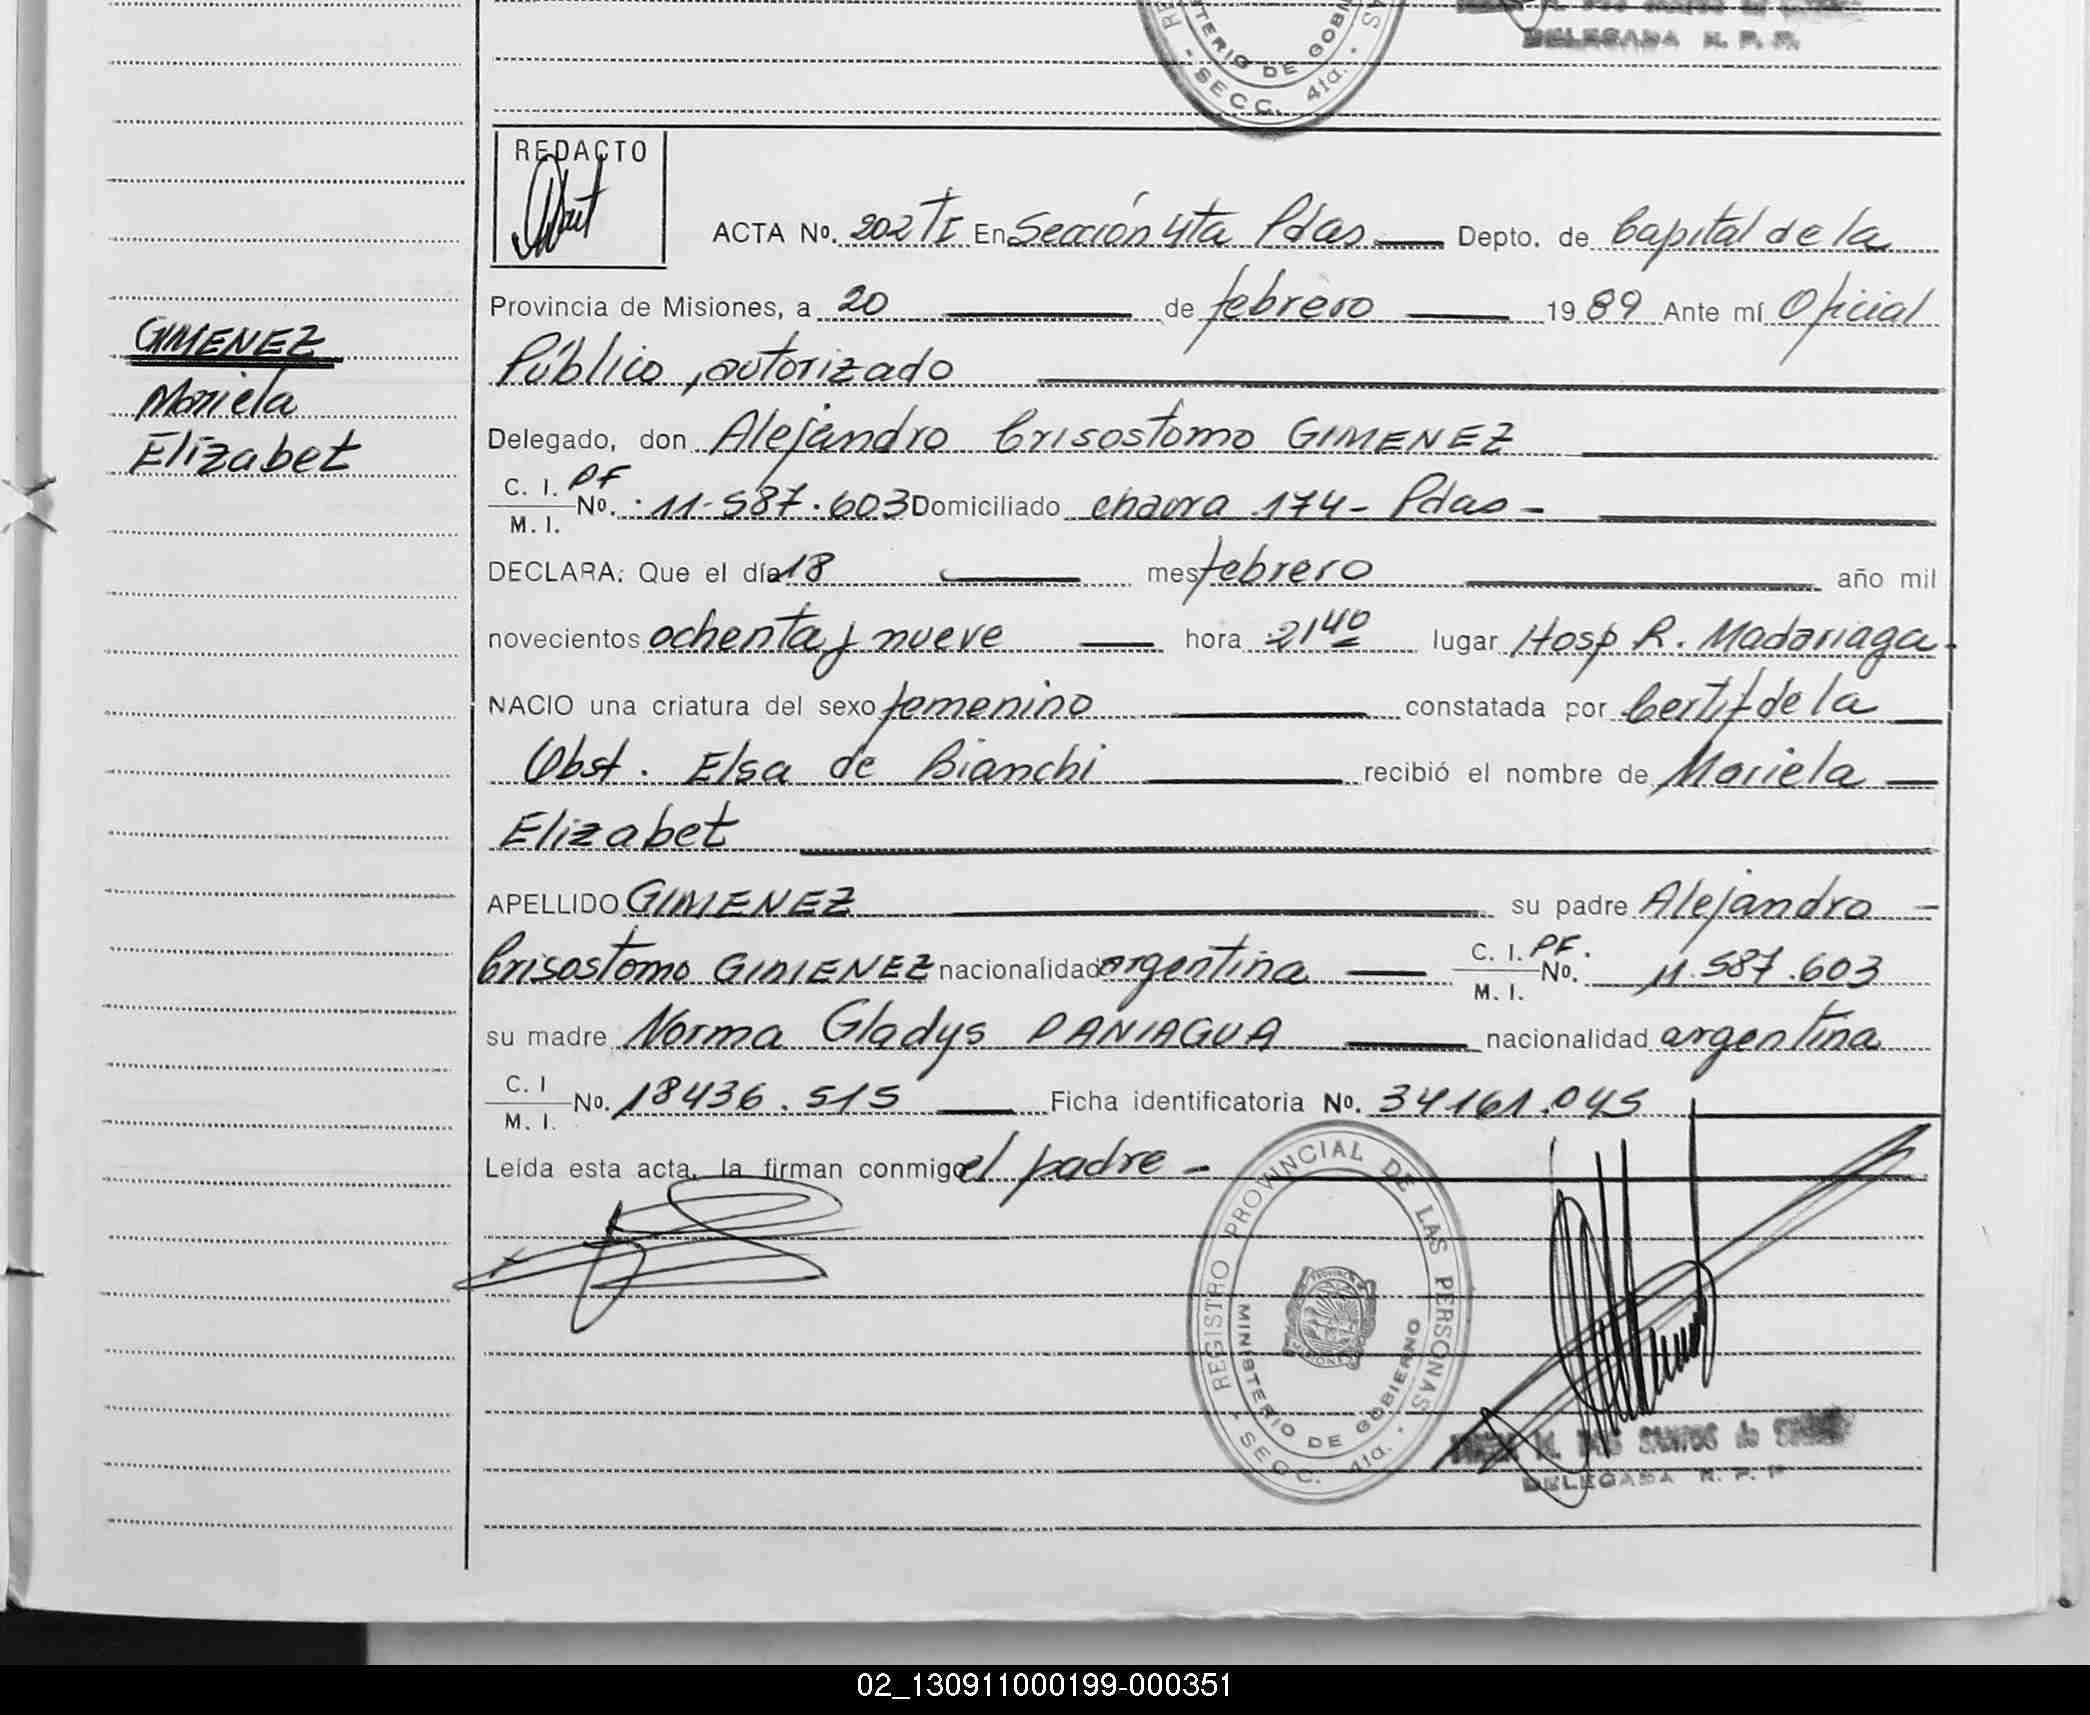 MINISTERIO DE GOBIERNO
SECC. 4ta.
DELEGADA R. P. P.
REDACTO
ACTA No. 202 TI En Sección 4ta Pdas Depto. de Capital de la
Provincia de Misiones, a 20 de febrero 1989 Ante mí Oficial
Público, autorizado
Delegado, don Alejandro Crisostomo GIMENEZ
C. I. PF
M. I. No. 11.587.603 Domiciliado chacra 174 - Pdas -
DECLARA: Que el día 18 mes febrero año mil
novecientos ochenta y nueve hora 21 40 lugar Hosp R. Madariaga -
NACIO una criatura del sexo femenino constatada por Certif de la
Obst. Elsa de Bianchi recibió el nombre de Mariela
Elizabet
APELLIDO GIMENEZ su padre Alejandro
Crisostomo GIMENEZ nacionalidad argentina C. I. PF. M. I. No. 11.587.603
su madre Norma Gladys PANIAGUA nacionalidad argentina
C. I M. I. No. 18436.515 Ficha identificatoria No. 34161.045
Leída esta acta, la firman conmigo el padre -
GIMENEZ
Mariela
Elizabet
REGISTRO PROVINCIAL DE LAS PERSONAS
MINISTERIO DE GOBIERNO
- SECC. 4ta. -
M. DOS SANTOS de
DELEGADA R. P. P
02_130911000199-000351